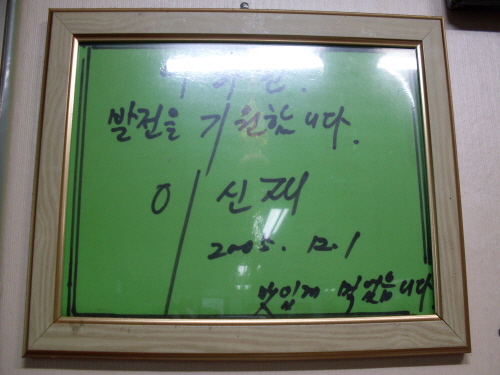 발전을 기원합니다.
이신재
2005. 12. 1
맛있게 먹었습니다